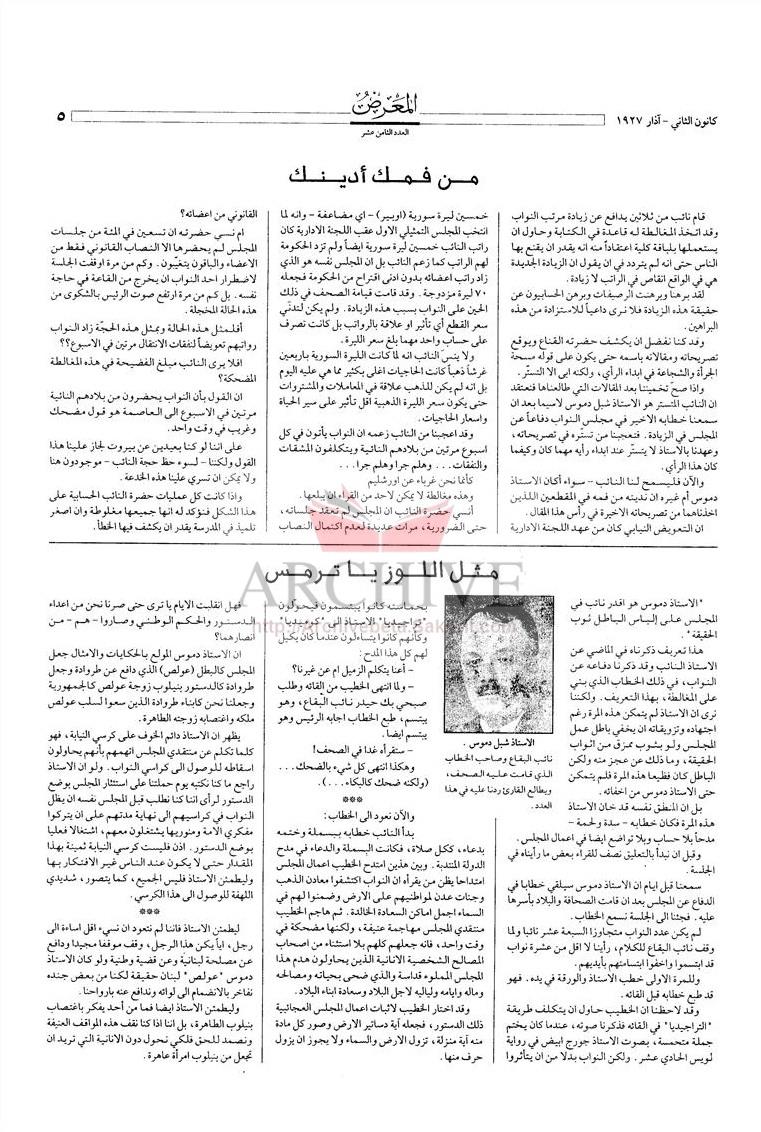 المعرض
العدد الثامن عشر
كانون الثاني - آذار ١٩٢٧
٥
من فمك أدينك
قام نائب من ثلاثين يدافع عن زيادة مرتب النواب
وقد اتخذ المغالطة له قاعدة في الكتابة وحاول ان
يستعملها بلباقة كلية اعتقاداً منه انه يقدر ان يقنع بها
الناس حتى انه لم يتردد في ان يقول ان الزيادة الجديدة
هي في الواقع انقاص في الراتب لا زيادة.
لقد برهنا وبرهنت الرصيفات وبرهن الحسابيون عن
حقيقة هذه الزيادة فلا نرى داعياً للاستزادة من هذه
البراهين.
وقد كنا نفضل ان يكشف حضرته القناع ويوقع
تصريحاته ومقالاته باسمه حتى يكون على قوله مسحة
الجرأة والشجاعة في ابداء الرأي، ولكنه ابى الا التستّر.
واذا صحّ تخميننا بعد المقالات التي طالعناها فنعتقد
ان النائب المتستر هو الاستاذ شبل دموس لاسيما بعد ان
سمعنا خطابه الاخير في مجلس النواب دفاعاً عن
المجلس في الزيادة. فتعجبنا من تستّره في تصريحاته،
وعهدنا بالاستاذ لا يتستّر عند ابداء رأيه مهما كان وكيفما
كان هذا الرأي.
والآن فليسمح لنا النائب - سواء أكان الاستاذ
دموس أم غيره ان ندينه من فمه في المقطعين اللذين
اخذناهما من تصريحاته الاخيرة في رأس هذا المقال.
ان التعويض النيابي كان من عهد اللجنة الادارية
خمسين ليرة سورية (اوبير) - اي مضاعفة - وانه لما
انتخب المجلس التمثيلي الاول عقب اللجنة الادارية كان
راتب النائب خمسين ليرة سورية ايضاً ولم تزد الحكومة
لهم الراتب كما زعم النائب بل ان المجلس نفسه هو الذي
زاد راتب اعضائه بدون ادنى اقتراح من الحكومة فجعله
٧٠ ليرة مزدوجة. وقد قامت قيامة الصحف في ذلك
الحين على النواب بسبب هذه الزيادة. ولم يكن لتدنّي
سعر القطع أي تأثير او علاقة بالراتب بل كانت تصرف
على حساب واحد مهما بلغ سعر الليرة.
ولا ينسَ النائب انه لما كانت الليرة السورية باربعين
غرشاً ذهباً كانت الحاجيات اغلى بكثير مما هي عليه اليوم
بل انه لم يكن للذهب علاقة في المعاملات والمشتروات
حتى يكون سعر الليرة الذهبية اقل تأثير على سير الحياة
واسعار الحاجيات.
وقد اعجبنا من النائب زعمه ان النواب يأتون في كل
اسبوع مرتين من بلادهم النائية ويتكلفون المشقات
والنفقات... وهلم جرا وهلم جرا...
كأنما نحن غرباء عن اورشليم
وهذه مغالطة لا يمكن لاحد من القراء ان يبلعها.
أنسي حضرة النائب ان المجلس لم تعقد جلساته،
حتى الضرورية، مرات عديدة لعدم اكتمال النصاب
القانوني من اعضائه؟
ام نسي حضرته ان تسعين في المئة من جلسات
المجلس لم يحضرها الا النصاب القانوني فقط من
الاعضاء والباقون يتغيّبون. وكم من مرة اوقفت الجلسة
لاضطرار احد النواب ان يخرج من القاعة في حاجة
نفسه. بل كم من مرة ارتفع صوت الرئيس بالشكوى من
هذه الحالة المخجلة.
أفلمثل هذه الحالة وبمثل هذه الحجّة زاد النواب
رواتبهم تعويضاً لنفقات الانتقال مرتين في الاسبوع؟؟
افلا يرى النائب مبلغ الفضيحة في هذه المغالطة
المضحكة؟
ان القول بأن النواب يحضرون من بلادهم النائية
مرتين في الاسبوع الى العاصمة هو قول مضحك
وغريب في وقت واحد.
على اننا لو كنا بعيدين عن بيروت لجاز علينا هذا
القول ولكننا - لسوء حظ حجة النائب - موجودون هنا
ولا يمكن ان تسري علينا هذه الخدعة.
واذا كانت كل عمليات حضرة النائب الحسابية على
هذا الشكل فنؤكد له انها جميعها مغلوطة وان اصغر
تلميذ في المدرسة يقدر ان يكشف فيها الخطأ.
مثل اللوز يا ترمس
ARCHIVE
"الاستاذ دموس هو اقدر نائب في
المجلس على إلباس الباطل ثوب
الحقيقة".
هذا تعريف ذكرناه في الماضي عن
الاستاذ النائب وقد ذكرنا دفاعه عن
النواب، في ذلك الخطاب الذي بني
على المغالطة، بهذا التعريف. ولكننا
نرى ان الاستاذ لم يتمكن هذه المرة رغم
اجتهاده وتزويقاته ان يخفي باطل عمل
المجلس ولو بثوب ممزق من اثواب
الحقيقة، وما ذلك عن عجز منه ولكن
الباطل كان فظيعا هذه المرة فلم يتمكن
حتى الاستاذ دموس من اخفائه.
بل ان المنطق نفسه قد خان الاستاذ
هذه المرة فكان خطابه - سدة ولحمة -
مدحاً بلا حساب وبلا تواضع ايضا في اعمال المجلس.
وقبل ان نبدأ بالتعليق نصف للقراء بعض ما رأيناه في
الجلسة.
سمعنا قبل ايام ان الاستاذ دموس سيلقي خطابا في
الدفاع عن المجلس بعد ان قامت الصحافة والبلاد بأسرها
عليه. فجئنا الى الجلسة نسمع الخطاب.
لم يكن عدد النواب متجاوزا السبعة عشر نائبا ولما
وقف نائب البقاع للكلام، رأينا لا اقل من عشرة نواب
قد ابتسموا واخفوا ابتسامتهم بأيديهم.
وللمرة الاولى خطب الاستاذ والورقة في يده. فهو
قد طبع خطابه قبل القائه.
وقد لاحظنا ان الخطيب حاول ان يتكلف طريقة
"التراجيديا" في القائه فذكرنا صوته، عندما كان يختم
جملة متحمسة، بصوت الاستاذ جورج ابيض في رواية
لويس الحادي عشر. ولكن النواب بدلا من ان يتأثروا
الاستاذ شبل دموس.
نائب البقاع وصاحب الخطاب
الذي قامت عليه الصحف،
ويطالع القارئ ردنا عليه في هذا
العدد.
بحماسته كانوا يبتسمون فيحولون
"تراجيديا" الاستاذ الى "كوميديا"
وكأنهم كانوا يتساءلون عندما كان يكيل
لهم كل هذا المدح:
- أعنا يتكلم الزميل ام عن غيرنا؟
- ولما انتهى الخطيب من القائه وطلب
صبحي بك حيدر نائب البقاع، وهو
يبتسم، طبع الخطاب اجابه الرئيس وهو
يبتسم ايضا.
- ستقرأه غدا في الصحف!
وهكذا انتهى كل شيء بالضحك...
(ولكنه ضحك كالبكاء...).
***
والآن نعود الى الخطاب:
بدأ النائب خطابه ببسملة وختمه
بدعاء، ككل صلاة، فكانت البسملة والدعاء في مدح
الدولة المنتدبة. وبين هذين امتدح الخطيب اعمال المجلس
امتداحا يظن من يقرأه ان النواب اكتشفوا معادن الذهب
وجنات عدن لمواطنيهم على الارض وضمنوا لهم في
السماء اجمل اماكن السعادة الخالدة. ثم هاجم الخطيب
منتقدي المجلس مهاجمة عنيفة، ولكنها مضحكة في
وقت واحد، فانه جعلهم كلهم بلا استثناء من اصحاب
المصالح الشخصية الانانية الذين يحاولون هدم هذا
المجلس المملوء قداسة والذي ضحى بحياته ومصالحه
وماله وايامه ولياليه لاجل البلاد وسعادة ابناء البلاد.
وقد اختار الخطيب لاثبات اعمال المجلس العجائبية
ذلك الدستور، فجعله آية دساتير الارض وصور كل مادة
منه آية منزلة، تزول الارض والسماء ولا يجوز ان يزول
حرف منها.
فهل انقلبت الايام يا ترى حتى صرنا نحن من اعداء
الدستور والحكم الوطني وصاروا - هم - من
انصارهما؟
ان الاستاذ دموس المولع بالحكايات والامثال جعل
المجلس كالبطل (عولص) الذي دافع عن طروادة وجعل
طروادة كالدستور بنيلوب زوجة عولص كالجمهورية
وجعلنا نحن كابناء طروادة الذين سعوا لسلب عولص
ملكه واغتصابه زوجته الطاهرة.
يظهر ان الاستاذ دائم الخوف على كرسي النيابة، فهو
كلما تكلم عن منتقدي المجلس اتهمهم بأنهم يحاولون
اسقاطه للوصول الى كراسي النواب. ولو ان الاستاذ
راجع ما كنا نكتبه يوم حملتنا على استئثار المجلس بوضع
الدستور لرأى اننا كنا نطلب قبل المجلس نفسه ان يظل
النواب في كراسيهم الى نهاية مدتهم على ان يتركوا
مفكري الامة ومنوريها يشتغلون معهم، اشتغالا فعليا
بوضع الدستور. اذن فليست كرسي النيابة ثمينة بهذا
المقدار حتى لا يكون عند الناس غير الافتكار بها
وليطمئن الاستاذ فليس الجميع، كما يتصور، شديدي
اللهفة للوصول الى هذا الكرسي.
***
ليطمئن الاستاذ فاننا لم نتعود ان نسيء اقل اساءة الى
رجل، اياً يكن هذا الرجل، وقف موقفا مجيدا ودافع
عن مصلحة لبنانية وعن قضية وطنية ولو كان الاستاذ
دموس "عولص" لبنان حقيقة لكنا من بعض جنده
نفاخر بالانضمام الى لوائه وندافع عنه بارواحنا.
وليطمئن الاستاذ ايضا فما من أحد يفكر باغتصاب
بنيلوب الطاهرة، بل اننا اذا كنا نقف هذه المواقف العنيفة
ونصمد للحق فلكي نحول دون الانانية التي تريد ان
تجعل من بنيلوب امرأة عاهرة.